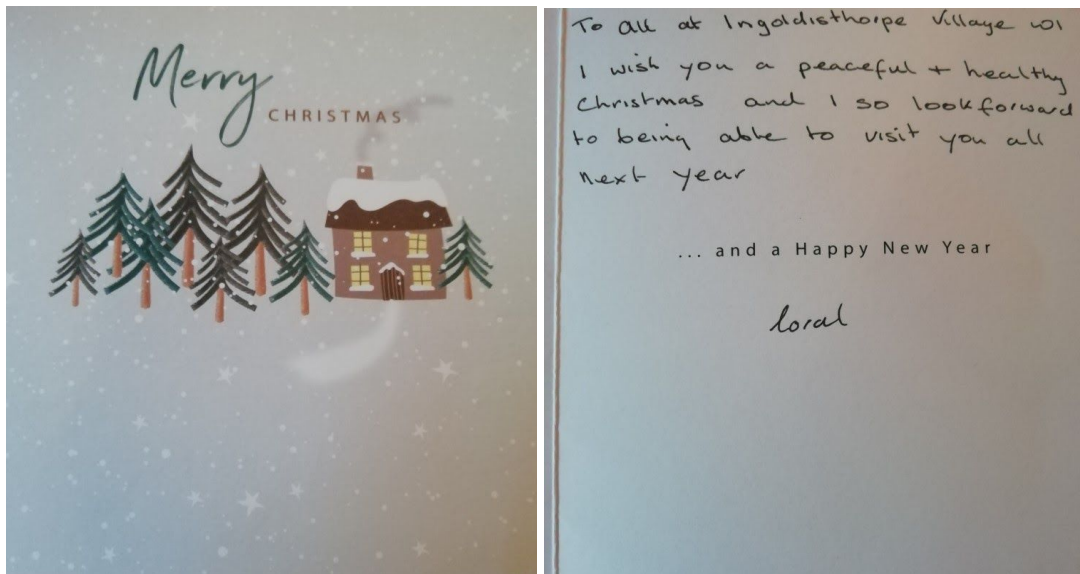 Merry
CHRISTMAS
To all at Ingoldisthorpe Village WI
I wish you a peaceful + healthy
Christmas and I so look forward
to being able to visit you all
next year
... and a Happy New Year
loral